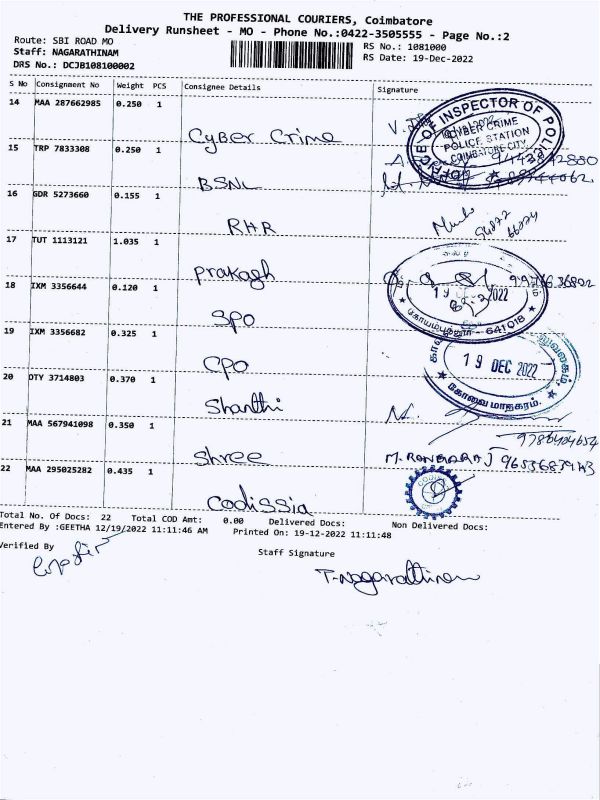 THE PROFESSIONAL COURIERS, Coimbatore
Delivery Runsheet - MO - Phone No.:0422-3505555 - Page No.:2
Route: SBI ROAD MO
RS No.: 1081000
Staff: NAGARATHINAM
RS Date: 19-Dec-2022
DRS No.: DCJB108100002
S No Consignment No Weight PCS Consignee Details Signature
14 MAA 287662985 0.250 1 Cyber Crime
OFFICE OF INSPECTOR OF POLICE
CYBER CRIME
POLICE STATION
COIMBATORE CITY
15 TRP 7833308 0.250 1 BSNL
16 GDR 5273660 0.155 1 RHR
17 TUT 1113121 1.035 1 Prakash
18 IXM 3356644 0.120 1 SPO
19 2022
கோயம்புத்தூர் - 641018
19 IXM 3356682 0.325 1 CPO
19 DEC 2022
கோவை மாநகரம்.
20 DTY 3714803 0.370 1 Shanthi
21 MAA 567941098 0.350 1 Shree
22 MAA 295025282 0.435 1 Codissia
Total No. Of Docs: 22 Total COD Amt: 0.00 Delivered Docs: Non Delivered Docs:
Entered By :GEETHA 12/19/2022 11:11:46 AM Printed On: 19-12-2022 11:11:48
Verified By
Staff Signature
T. Nagarathinam